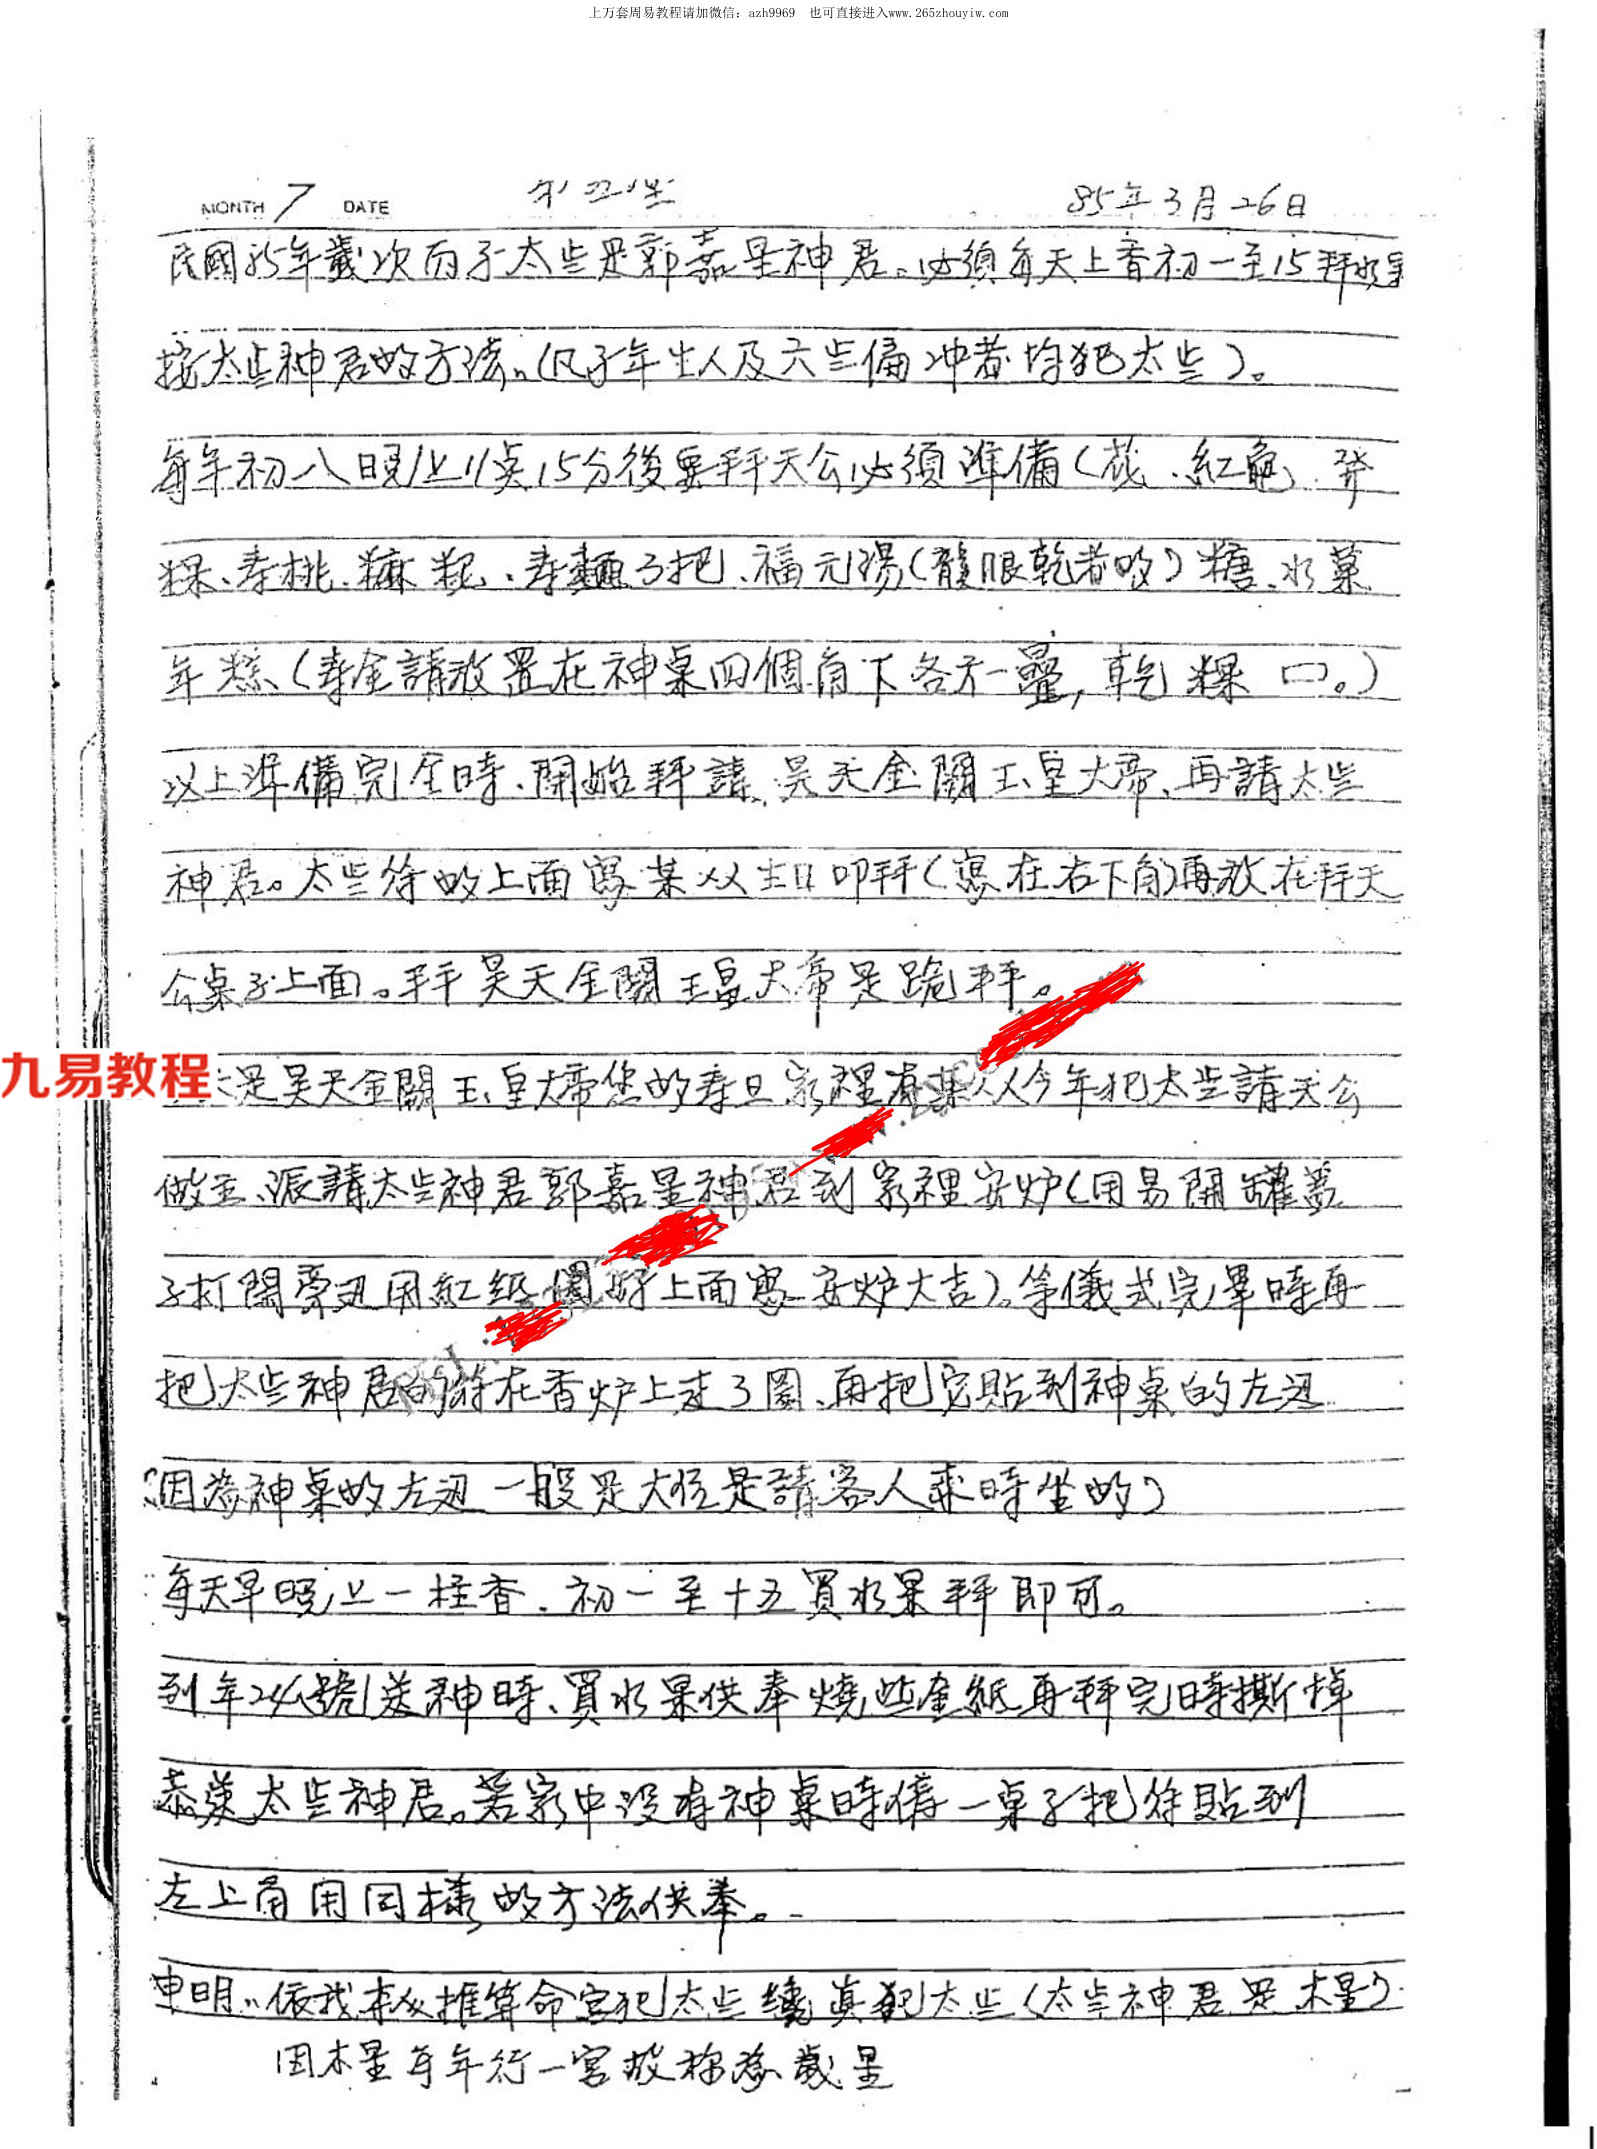 上万套周易教程请加微信：azh9969 也可直接进入www.265zhouyiw.com
MONTH 7 DATE 85年3月26日
民國85年歲次丙子太岁是郭嘉星神君。必須每天上香初一至15拜水果
按太岁神君的方法。(凡子年生人及六岁偏冲者均犯太岁)。
每年初八日晚上11点15分後要拜天公必須準備(花、紅龜、發
粿、寿桃、麻粩、寿麵3把、福元湯(龍眼乾煮的)糖、水菓
年糕(寿金請放置在神桌四個角下各方一疊,乾粿 口。)
以上準備完全時、開始拜請、昊天金闕玉皇大帝、再請太岁
神君。太岁符的上面寫某XX生日叩拜(寫在右下角)再放在拜天
公桌子上面。拜昊天金闕玉皇大帝是跪拜。
九易教程
是昊天金闕玉皇大帝您的寿旦家裡有某XX今年犯太岁請天公
做主、派請太岁神君郭嘉星神君到家裡安炉(用易開罐蓋
子打開旁边用紅紙圍好上面寫安炉大吉)。等儀式完畢時再
把太岁神君的符在香炉上走3圈、再把它貼到神桌的左边
(因為神桌的左边一般是大位是請客人來時坐的)
每天早晚上一柱香、初一至十五買水果拜即可。
到年24號送神時、買水果供奉燒些金紙再拜完時撕掉
恭送太岁神君。若家中没有神桌時備一桌子把符貼到
左上角用同樣的方法供奉。
申明、依我本人推算命宫犯太岁才真犯太岁(太岁神君是木星)
因木星每年行一宫故称為歲星